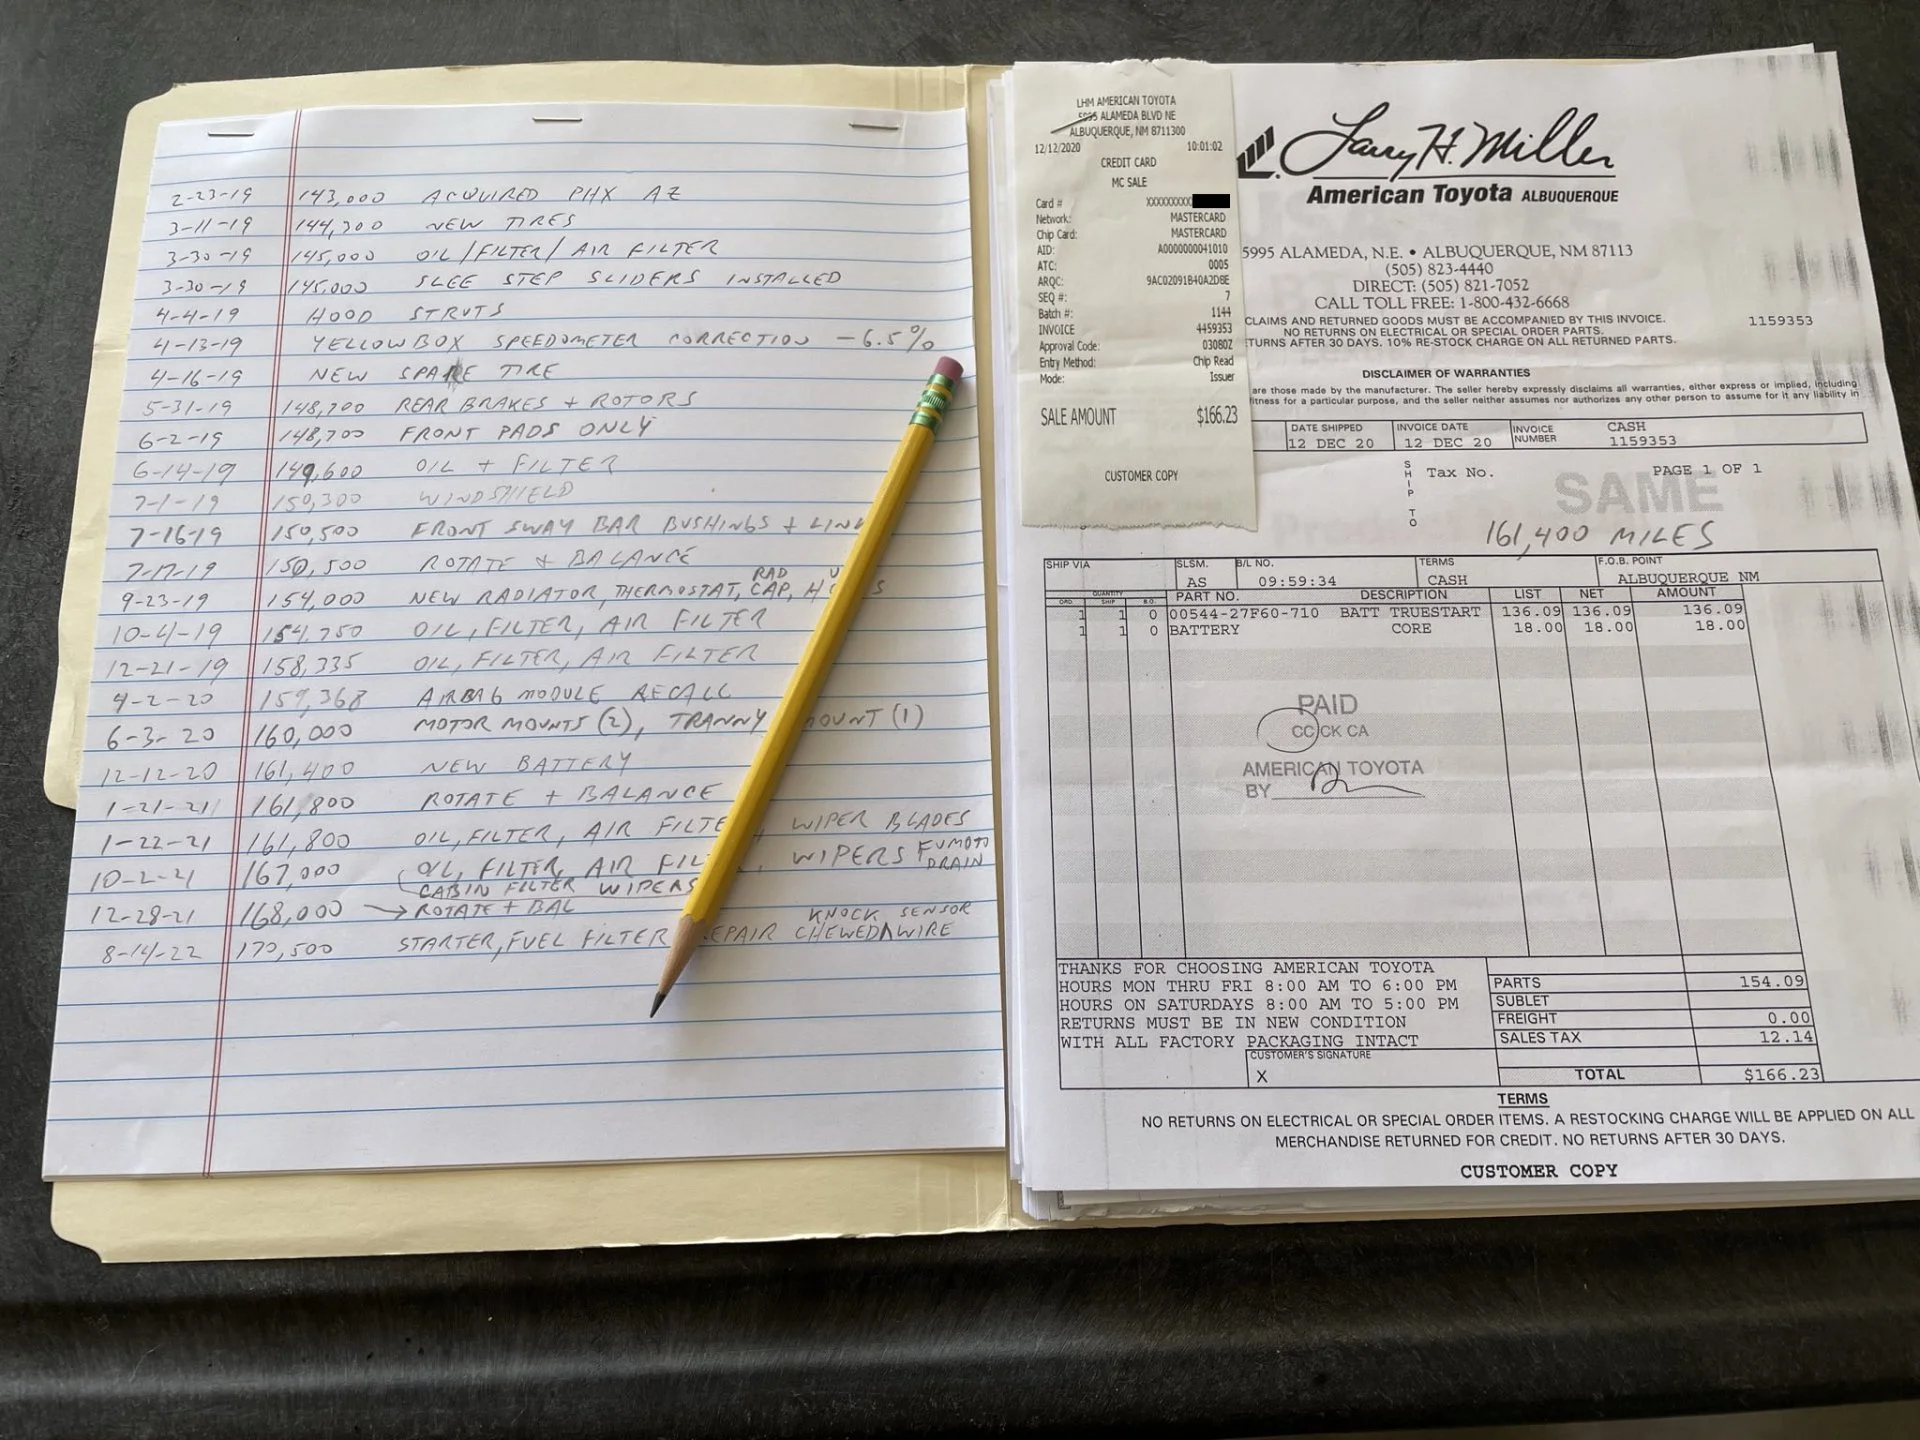 2-23-19 143,000 ACQUIRED PHX AZ
3-11-19 144,300 NEW TIRES
3-30-19 145,000 OIL/FILTER/AIR FILTER
3-30-19 145,000 SLEE STEP SLIDERS INSTALLED
4-4-19 HOOD STRUTS
4-13-19 YELLOWBOX SPEEDOMETER CORRECTION -6.5%
4-16-19 NEW SPARE TIRE
5-31-19 148,700 REAR BRAKES + ROTORS
6-2-19 148,700 FRONT PADS ONLY
6-14-19 149,600 OIL + FILTER
7-1-19 150,300 WINDSHIELD
7-16-19 150,500 FRONT SWAY BAR BUSHINGS +
7-17-19 150,500 ROTATE + BALANCE
9-23-19 154,000 NEW RADIATOR, THERMOSTAT, RAD CAP,
10-4-19 154,750 OIL, FILTER, AIR FILTER
12-21-19 158,335 OIL, FILTER, AIR FILTER
4-2-20 159,368 AIRBAG MODULE RECALL
6-3-20 160,000 MOTOR MOUNTS (2), TRANNY MOUNT (1)
12-12-20 161,400 NEW BATTERY
1-21-21 161,800 ROTATE + BALANCE
1-22-21 161,800 OIL, FILTER, AIR FILTER, WIPER BLADES
10-2-21 167,000 OIL, FILTER, AIR FIL , WIPERS FUMOTO DRAIN
CABIN FILTER WIPERS
12-28-21 168,000 → ROTATE + BAL
8-14-22 170,500 STARTER, FUEL FILTER REPAIR CHEWED KNOCK SENSOR WIRE
LHM AMERICAN TOYOTA
5995 ALAMEDA BLVD NE
ALBUQUERQUE, NM 8711300
12/12/2020 10:01:02
CREDIT CARD
MC SALE
Card # XXXXXXXXX
Network: MASTERCARD
Chip Card: MASTERCARD
AID: A0000000041010
ATC: 0005
ARQC: 9AC02091B40A2D8E
SEQ #: 7
Batch #: 1144
INVOICE 4459353
Approval Code: 03080Z
Entry Method: Chip Read
Mode: Issuer
SALE AMOUNT $166.23
CUSTOMER COPY
Larry H. Miller
American Toyota ALBUQUERQUE
5995 ALAMEDA, N.E. • ALBUQUERQUE, NM 87113
(505) 823-4440
DIRECT: (505) 821-7052
CALL TOLL FREE: 1-800-432-6668
CLAIMS AND RETURNED GOODS MUST BE ACCOMPANIED BY THIS INVOICE.
NO RETURNS ON ELECTRICAL OR SPECIAL ORDER PARTS.
TURNS AFTER 30 DAYS. 10% RE-STOCK CHARGE ON ALL RETURNED PARTS.
1159353
DISCLAIMER OF WARRANTIES
are those made by the manufacturer. The seller hereby expressly disclaims all warranties, either express or implied, including
itness for a particular purpose, and the seller neither assumes nor authorizes any other person to assume for it any liability in
DATE SHIPPED INVOICE DATE INVOICE NUMBER CASH
12 DEC 20 12 DEC 20 1159353
SHIP TO Tax No. PAGE 1 OF 1
SAME
161,400 MILES
SHIP VIA SLSM. B/L NO. TERMS F.O.B. POINT
AS 09:59:34 CASH ALBUQUERQUE NM
ORD. QUANTITY SHIP B.O. PART NO. DESCRIPTION LIST NET AMOUNT
1 1 0 00544-27F60-710 BATT TRUESTART 136.09 136.09 136.09
1 1 0 BATTERY CORE 18.00 18.00 18.00
PAID
CC CK CA
AMERICAN TOYOTA
BY
THANKS FOR CHOOSING AMERICAN TOYOTA
HOURS MON THRU FRI 8:00 AM TO 6:00 PM
HOURS ON SATURDAYS 8:00 AM TO 5:00 PM
RETURNS MUST BE IN NEW CONDITION
WITH ALL FACTORY PACKAGING INTACT
PARTS 154.09
SUBLET
FREIGHT 0.00
SALES TAX 12.14
CUSTOMER'S SIGNATURE
X
TOTAL $166.23
TERMS
NO RETURNS ON ELECTRICAL OR SPECIAL ORDER ITEMS. A RESTOCKING CHARGE WILL BE APPLIED ON ALL
MERCHANDISE RETURNED FOR CREDIT. NO RETURNS AFTER 30 DAYS.
CUSTOMER COPY